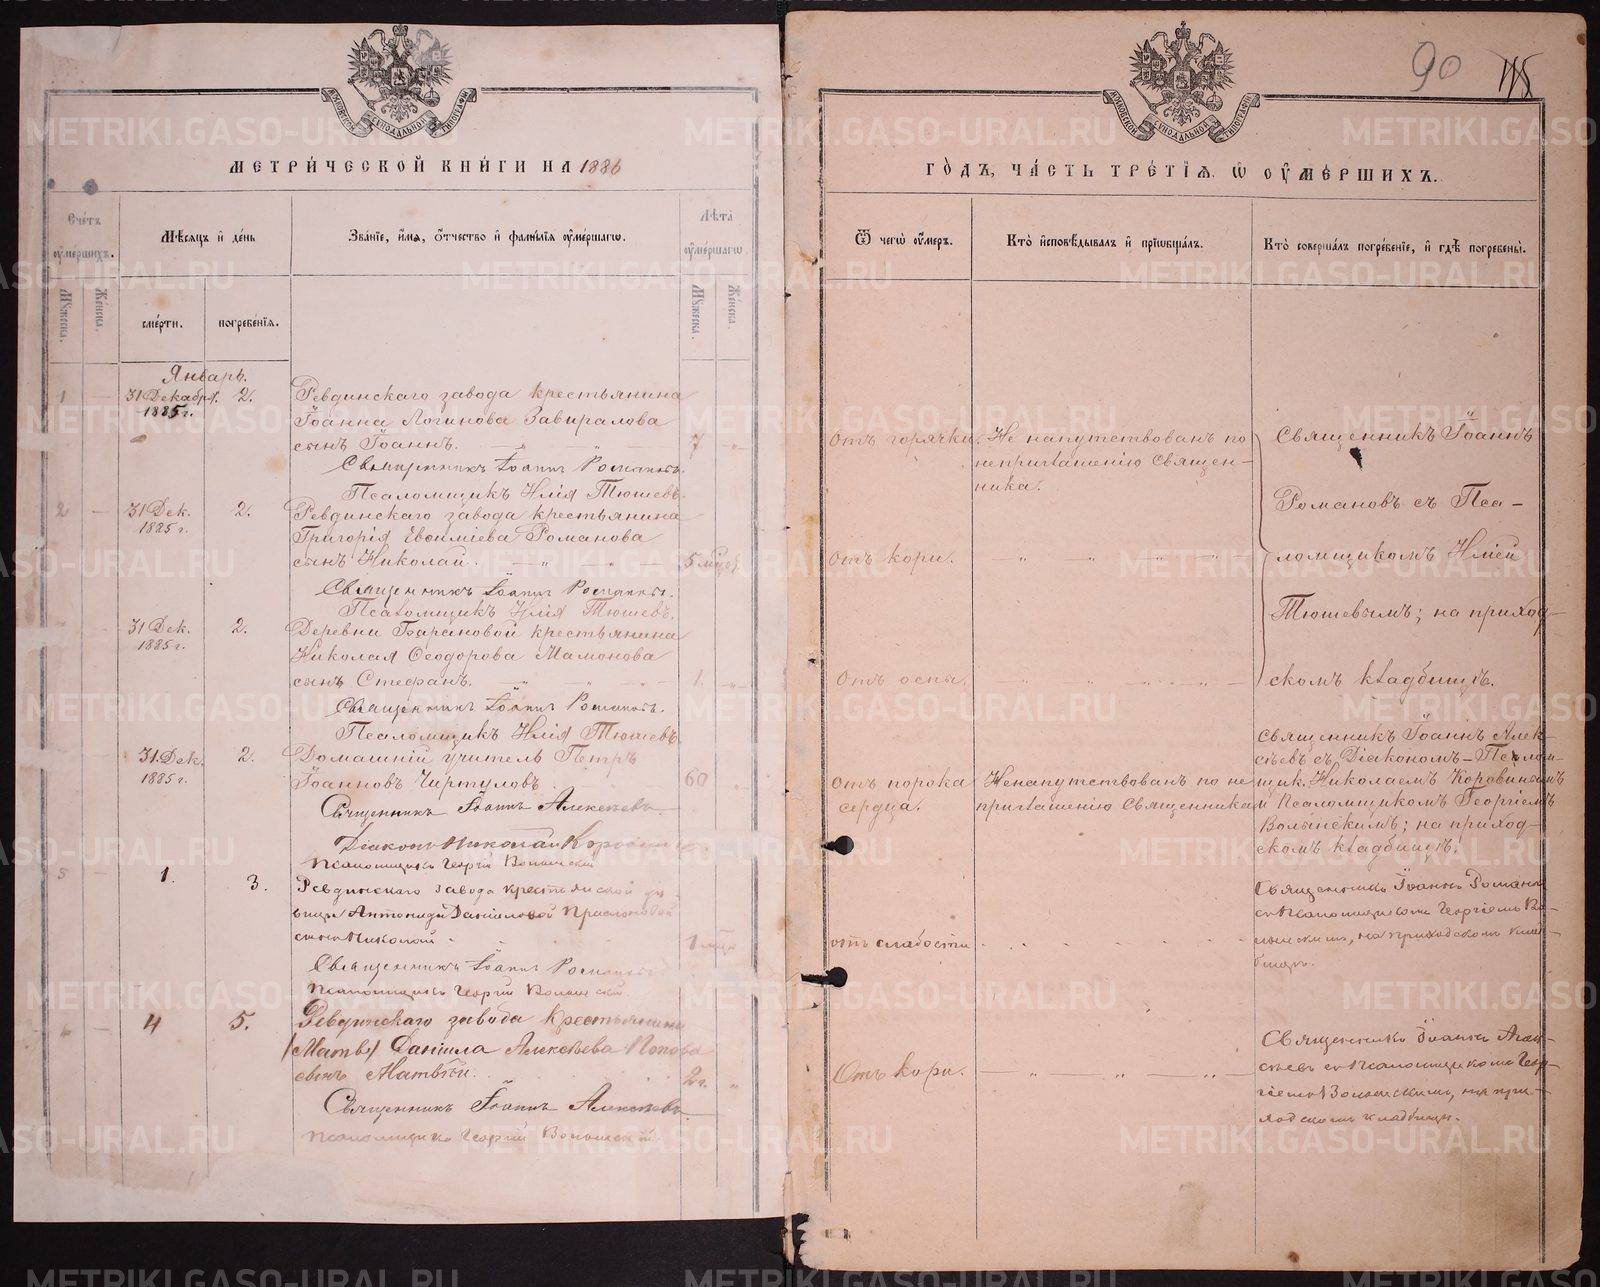 МЕТРИ́ЧЕСКОЙ КНИ́ГИ НА 1886
Сче́тъ ᲂу҆ме́ршихъ.
Мѣ́сяцъ и҆ де́нь
Зва́нїе, и҆́мя, ѻ҆́тчество и҆ фами́лїя ᲂу҆ме́ршагѡ.
Лѣта̀ ᲂу҆ме́ршагѡ.
Мꙋ́жеска.
Же́нска.
сме́рти.
погребе́нїя.
Мꙋ́жеска
Же́нска.
Январь.
1 — 31 Декабря. 2. Ревдинскаго завода крестьянина
1885 г. Іоанна Логинова Завиралова
сынъ Іоаннъ. — „ — „ — 7 „
Священникъ Іоаннъ Романовъ.
Псаломщикъ Илія Тюшевъ.
2 — 31 Дек. 2. Ревдинскаго завода крестьянина
1885 г. Григорія Евѳиміева Романова
сынъ Николай. — „ — 5 мѣс.
Священникъ Іоаннъ Романовъ.
Псаломщикъ Илія Тюшевъ.
31 Дек. 2. Деревни Барановой крестьянина
1885 г. Николая Ѳеодорова Мамонова
сынъ Стефанъ. — 1. „
Священникъ Іоаннъ Романовъ.
Псаломщикъ Илія Тюшевъ.
31 Дек. 2. Домашній учитель Петръ
1885 г. Іоанновъ Чиртуловъ. 60
Священникъ Іоаннъ Алексѣевъ
Діаконъ Николай Коровинъ
Псаломщикъ Георгій Волынскій
5 — 1. 3. Ревдинскаго завода крестьянской дѣ-
вицы Антониды Даніиловой
сынъ Николай. 1 мѣс.
Священникъ Іоаннъ Романовъ
Псаломщикъ Георгій Волынскій.
6 — 4 5. Ревдинскаго завода крестьянина
(Матв) Даніила Алексѣева Попова
сынъ Матвѣй. 2 г. „
Священникъ Іоаннъ Алексѣевъ
Псаломщикъ Георгій Волынскій.
90
ГО́ДЪ, ЧА́СТЬ ТРЕ́ТЇѦ Ѡ҆ ОУ҆МЕ́РШИХЪ.
Ѿ чегѡ̀ ᲂу҆́меръ.
Кто̀ и҆сповѣ́дывалъ и҆ прїѡбща́лъ.
Кто̀ соверша́лъ погребе́нїе, и҆ гдѣ̀ погребены̀.
Отъ горячки. Не напутствованъ по
неприглашенію священ-
ника.
Священникъ Іоаннъ
Романовъ съ Пса-
Отъ кори. — „ — „ — „ —
ломщикомъ Иліей
Тюшевымъ; на приход-
Отъ оспы. „ „ „ „ —
скомъ кладбищѣ.
Отъ порока
сердца.
Ненапутствованъ по не
приглашенію священника
Священникъ Іоаннъ Алек-
сѣевъ съ Діакономъ-Псалом-
щик. Николаемъ Коровинымъ
и Псаломщикомъ Георгіемъ
Волынскимъ; на приход-
скомъ кладбищѣ.
отъ слабости
Священникъ Іоаннъ Романо
съ Псаломщикомъ Георгіемъ Во-
лынскимъ, на приходскомъ клад-
бищѣ.
Отъ кори. — „ — „ — „ —
Священникъ Іоаннъ Алек-
сѣевъ съ Псаломщикомъ Геор-
гіемъ Волынскимъ, на при-
ходскомъ кладбищѣ.
METRIKI.GASO-URAL.RU